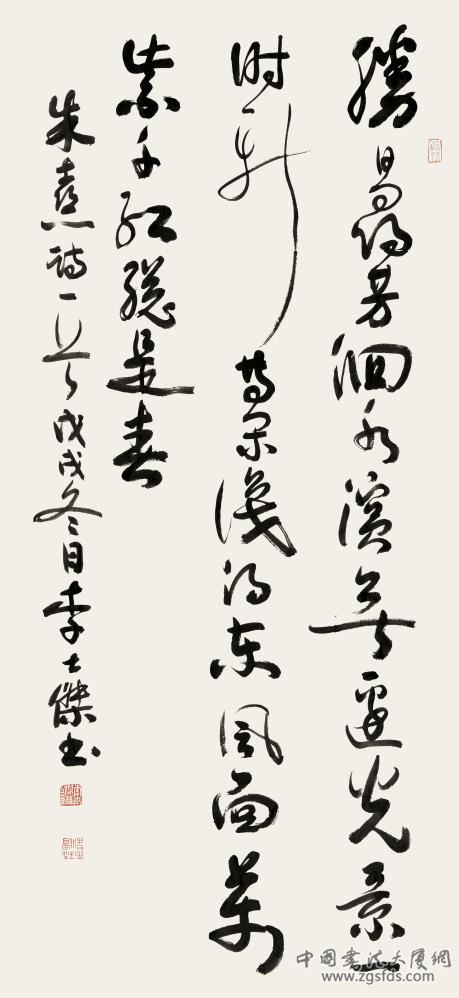 勝日尋芳泗水濱無邊光景一
时新等閑識得东風面萬
紫千紅總是春
朱熹詩一首戊戌冬日李士傑书
中國書法大廈網
www.zgsfds.com